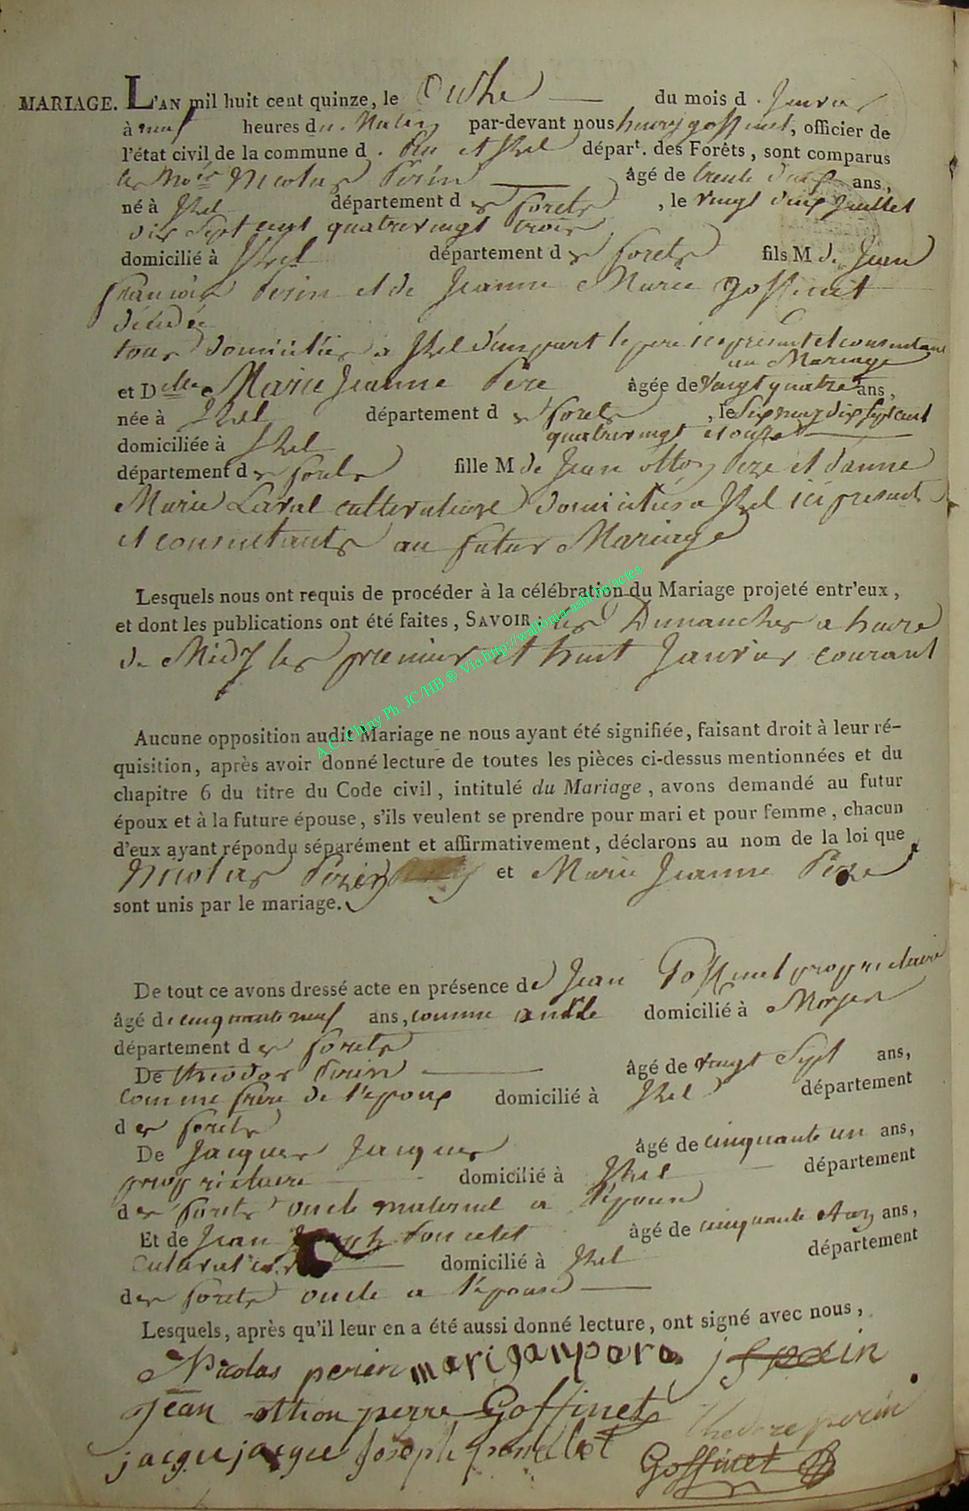 MARIAGE. L'AN mil huit cent quinze, le onshe du mois d. Janvier
à neuf heures du Matin par-devant nous henry goffinet, officier de
l'état civil de la commune d. et Izel départ. des Forêts, sont comparus
le Nicolas Perin âgé de trente ans,
né à Izel département des forets, le vingt Juillet
dix sept cent quatre vingt trois
domicilié à Izel département des forets fils M de Jean
francois Perin et de Jeanne Marie goffinet
décédée
tous domiciliés a Izel d'une part le pere ici present et consentant
au Mariage
et Dlle Marie Jeanne Pere âgée de vingt quatre ans,
née à Izel département des forets, le six sept cent
quatre vingt et onze
domiciliée à Izel
département des forets fille M de Jean otton Peze et d'anne
Marie Laval cultivateurs domiciliés a Izel ici present
et consentants au futur Mariage
Lesquels nous ont requis de procéder à la célébration du Mariage projeté entr'eux,
et dont les publications ont été faites, SAVOIR: les Dimanches a heure
de Midy les premier et huit Janvier courant
Aucune opposition audit Mariage ne nous ayant été signifiée, faisant droit à leur ré-
quisition, après avoir donné lecture de toutes les pièces ci-dessus mentionnées et du
chapitre 6 du titre du Code civil, intitulé du Mariage, avons demandé au futur
époux et à la future épouse, s'ils veulent se prendre pour mari et pour femme, chacun
d'eux ayant répondu séparément et affirmativement, déclarons au nom de la loi que
Nicolas Perin et Marie Jeanne Peze
sont unis par le mariage.
De tout ce avons dressé acte en présence de Jean Goffinet proprietaire
âgé de cinquante neuf ans, comme domicilié à Moyen
département des forets
De théodor Perin âgé de vingt sept ans,
Comme frere de l'epoux domicilié à Izel département
des forets
De Jacques Jacques âgé de cinquante un ans,
proprietaire domicilié à Izel département
des forets oncle maternel a l'epoux
Et de Jean Poncelet âgé de cinquante ans,
Cultivateur domicilié à Izel département
des forets oncle a l'epouse
Lesquels, après qu'il leur en a été aussi donné lecture, ont signé avec nous,
Nicolas perin j f perin
jean othon perre Goffinet theodore perin
jacque jacque Joseph Goffinet
A.C. Chiny Ph. JC/HB © Via http://wallonia-asbl.be/actes